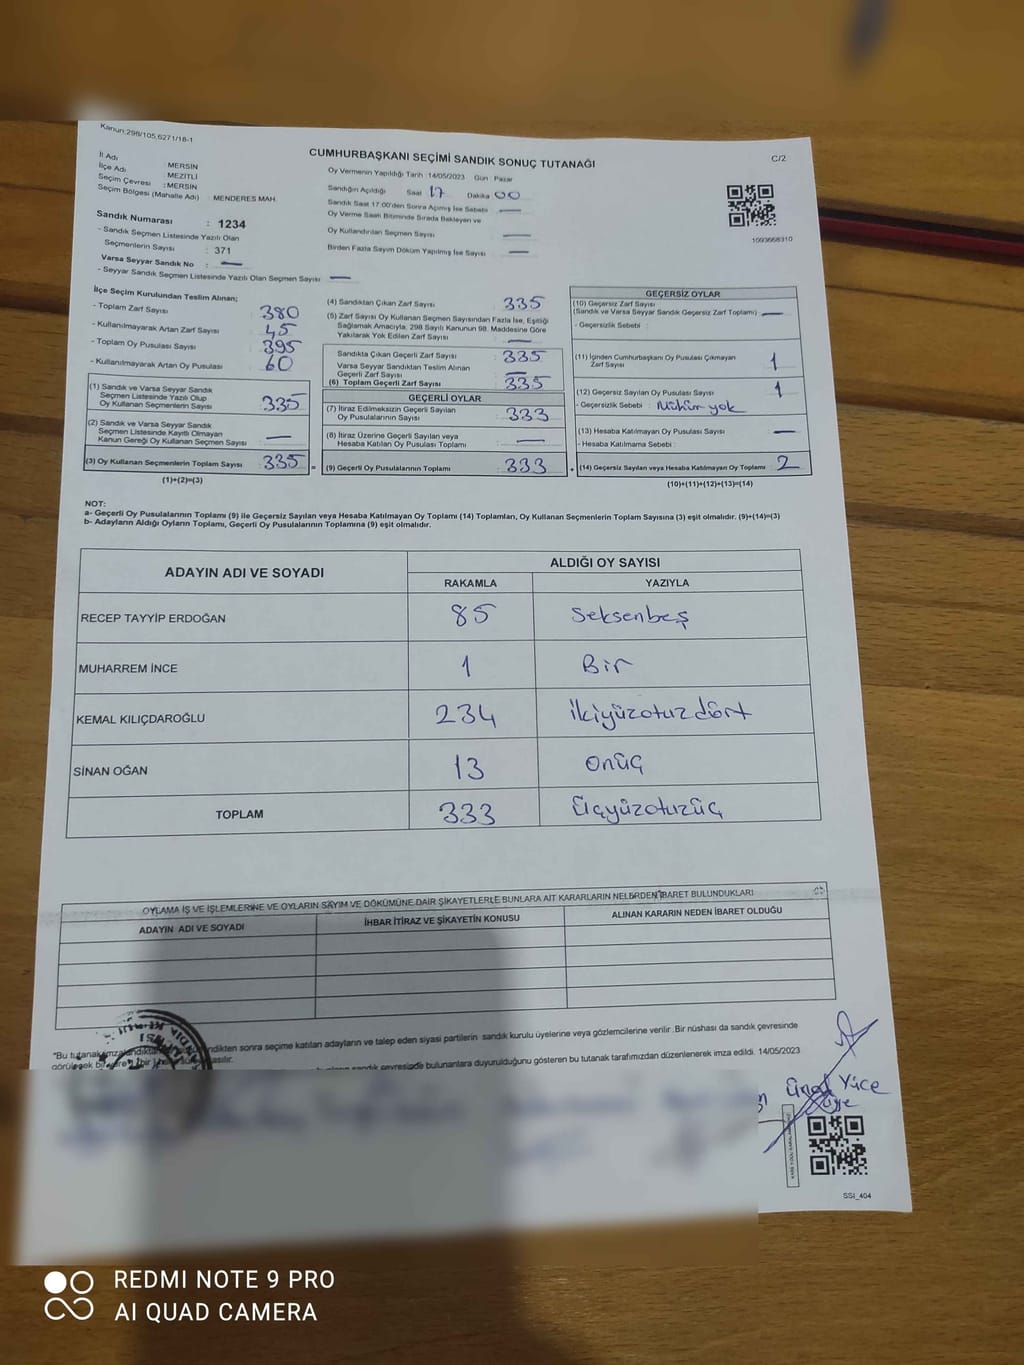 Kanun:298/105,6271/18-1
CUMHURBAŞKANI SEÇİMİ SANDIK SONUÇ TUTANAĞI
C/2
İl Adı : MERSİN
İlçe Adı : MEZİTLİ
Seçim Çevresi : MERSİN
Seçim Bölgesi (Mahalle Adı) MENDERES MAH.
Oy Vermenin Yapıldığı Tarih :14/05/2023 Gün : Pazar
Sandığın Açıldığı Saat 17 Dakika 00
Sandık Saat 17:00'den Sonra Açılmış İse Sebebi —
Oy Verme Saati Bitiminde Sırada Bekleyen ve
Oy Kullandırılan Seçmen Sayısı —
Birden Fazla Sayım Döküm Yapılmış İse Sayısı —
1093668310
Sandık Numarası : 1234
- Sandık Seçmen Listesinde Yazılı Olan
Seçmenlerin Sayısı : 371
Varsa Seyyar Sandık No : —
- Seyyar Sandık Seçmen Listesinde Yazılı Olan Seçmen Sayısı —
İlçe Seçim Kurulundan Teslim Alınan;
- Toplam Zarf Sayısı 380
- Kullanılmayarak Artan Zarf Sayısı 45
- Toplam Oy Pusulası Sayısı 395
- Kullanılmayarak Artan Oy Pusulası 60
(1) Sandık ve Varsa Seyyar Sandık
Seçmen Listesinde Yazılı Olup
Oy Kullanan Seçmenlerin Sayısı 335
(2) Sandık ve Varsa Seyyar Sandık
Seçmen Listesinde Kayıtlı Olmayan
Kanun Gereği Oy Kullanan Seçmen Sayısı —
(3) Oy Kullanan Seçmenlerin Toplam Sayısı 335 =
(1)+(2)=(3)
(4) Sandıktan Çıkan Zarf Sayısı 335
(5) Zarf Sayısı Oy Kullanan Seçmen Sayısından Fazla İse, Eşitliği
Sağlamak Amacıyla, 298 Sayılı Kanunun 98. Maddesine Göre
Yakılarak Yok Edilen Zarf Sayısı —
Sandıkta Çıkan Geçerli Zarf Sayısı 335
Varsa Seyyar Sandıktan Teslim Alınan
Geçerli Zarf Sayısı —
(6) Toplam Geçerli Zarf Sayısı 335
GEÇERLİ OYLAR
(7) İtiraz Edilmeksizin Geçerli Sayılan
Oy Pusulalarının Sayısı 333
(8) İtiraz Üzerine Geçerli Sayılan veya
Hesaba Katılan Oy Pusulası Toplamı —
(9) Geçerli Oy Pusulalarının Toplamı 333 +
GEÇERSİZ OYLAR
(10) Geçersiz Zarf Sayısı
(Sandık ve Varsa Seyyar Sandık Geçersiz Zarf Toplamı) —
- Geçersizlik Sebebi :
(11) İçinden Cumhurbaşkanı Oy Pusulası Çıkmayan
Zarf Sayısı 1
(12) Geçersiz Sayılan Oy Pusulası Sayısı 1
- Geçersizlik Sebebi : Mühür yok
(13) Hesaba Katılmayan Oy Pusulası Sayısı —
- Hesaba Katılmama Sebebi :
(14) Geçersiz Sayılan veya Hesaba Katılmayan Oy Toplamı 2
(10)+(11)+(12)+(13)=(14)
NOT:
a- Geçerli Oy Pusulalarının Toplamı (9) ile Geçersiz Sayılan veya Hesaba Katılmayan Oy Toplamı (14) Toplamları, Oy Kullanan Seçmenlerin Toplam Sayısına (3) eşit olmalıdır. (9)+(14)=(3)
b- Adayların Aldığı Oyların Toplamı, Geçerli Oy Pusulalarının Toplamına (9) eşit olmalıdır.
ADAYIN ADI VE SOYADI
ALDIĞI OY SAYISI
RAKAMLA YAZIYLA
RECEP TAYYİP ERDOĞAN 85 Seksenbeş
MUHARREM İNCE 1 Bir
KEMAL KILIÇDAROĞLU 234 İkiyüzotuzdört
SİNAN OĞAN 13 Onüç
TOPLAM 333 Üçyüzotuzüç
OYLAMA İŞ VE İŞLEMLERİNE VE OYLARIN SAYIM VE DÖKÜMÜNE DAİR ŞİKAYETLERLE BUNLARA AİT KARARLARIN NELERDEN İBARET BULUNDUKLARI
ADAYIN ADI VE SOYADI
İHBAR İTİRAZ VE ŞİKAYETİN KONUSU
ALINAN KARARIN NEDEN İBARET OLDUĞU
*Bu tutanak imzalandıktan sonra seçime katılan adayların ve talep eden siyasi partilerin sandık kurulu üyelerine veya gözlemcilerine verilir .Bir nüshası da sandık çevresinde
görülecek bir yere
sandık çevresinde bulunanlara duyurulduğunu gösteren bu tutanak tarafımızdan düzenlenerek imza edildi. 14/05/2023
Ünal Yüce
Üye
SSI_404
REDMI NOTE 9 PRO
AI QUAD CAMERA